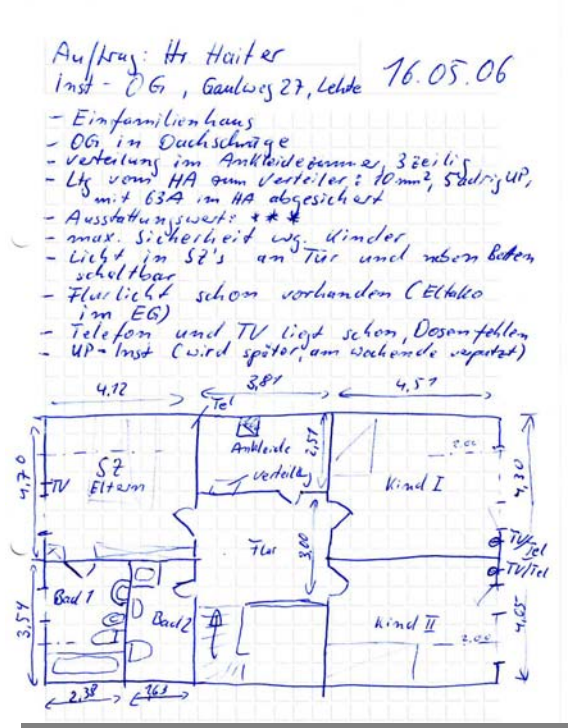 Auftrag: Hr Haiter
16.05.06
Inst - OG, Gaulweg 27, Lehde
- Einfamilienhaus
- OG in Dachschräge
- Verteilung im Ankleidezimmer, 3 zeilig
- Ltg vom HA zum Verteiler: 10mm², 5adrig UP,
mit 63A im HA abgesichert
- Ausstattungswert: ***
- max. Sicherheit wg. Kinder
- Licht in SZ's an Tür und neben Betten
schaltbar
- Flurlicht schon vorhanden (Eltako
im EG)
- Telefon und TV liegt schon, Dosen fehlen
- UP-Inst (wird später, am wochende verputzt)
4,12
3,81
4,51
Tel
4,70
TV
SZ
Eltern
Ankleide
Verteilung
2,51
Kind I
2,00
4,30
Flur
3,00
TV/Tel
TV/Tel
3,54
Bad 1
Bad 2
Kind II
2,00
4,65
2,38
1,63